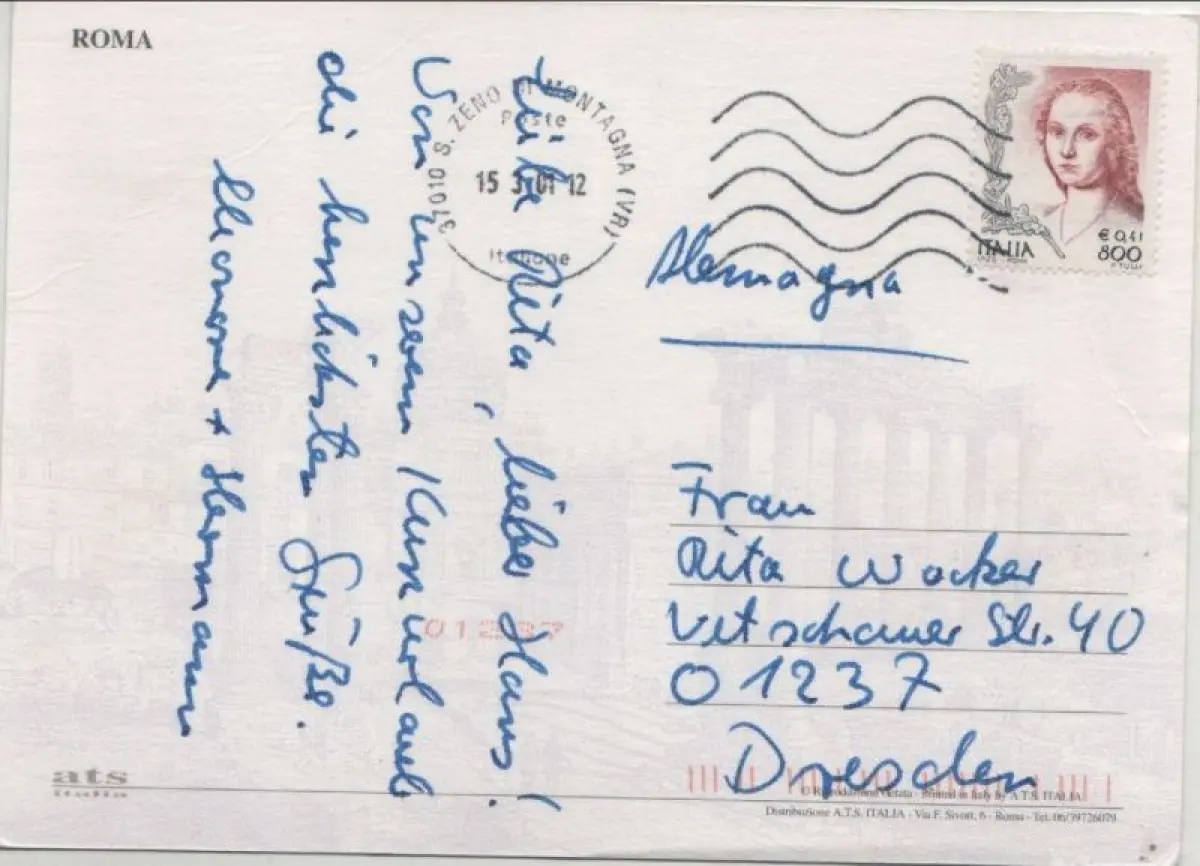 ROMA
Liebe Rita, lieber Hans!
Von unserem Kurzurlaub
die herzlichsten Grüße.
Eleonore + Hermann
37010 S. ZENO DI MONTAGNA (VR)
Poste
15 3 01 12
Italiane
ITALIA
€ 0,41
800
Alemagna
Frau
Rita Wacker
Vetschauer Str. 40
01237
Dresden
01237
ats
© Riproduzione Vietata - Printed in Italy by A.T.S. ITALIA
Distribuzione A.T.S. ITALIA - Via F. Sivori, 6 - Roma - Tel. 06/39726079